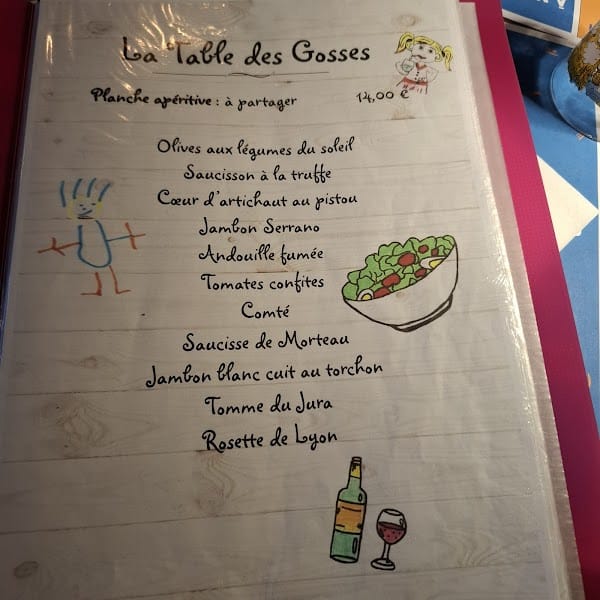 La Table des Gosses
Planche apéritive : à partager 14,00 €
Olives aux légumes du soleil
Saucisson à la truffe
Cœur d'artichaut au pistou
Jambon Serrano
Andouille fumée
Tomates confites
Comté
Saucisse de Morteau
Jambon blanc cuit au torchon
Tomme du Jura
Rosette de Lyon